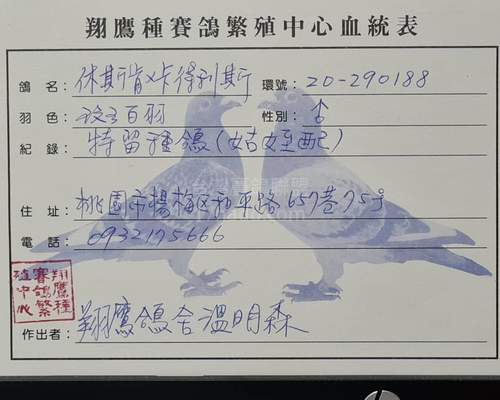 翔鷹種賽鴿繁殖中心血統表
鴿名：休斯肯X卡得利斯 環號：20-290188
羽色：玟百羽 性別：♂
紀錄：特留種鴿(姑姪配)
住址：桃園市楊梅区和平路657巷75号
電話：0932175666
翔鷹種賽鴿繁殖中心
作出者：翔鷹鴿舍溫明森